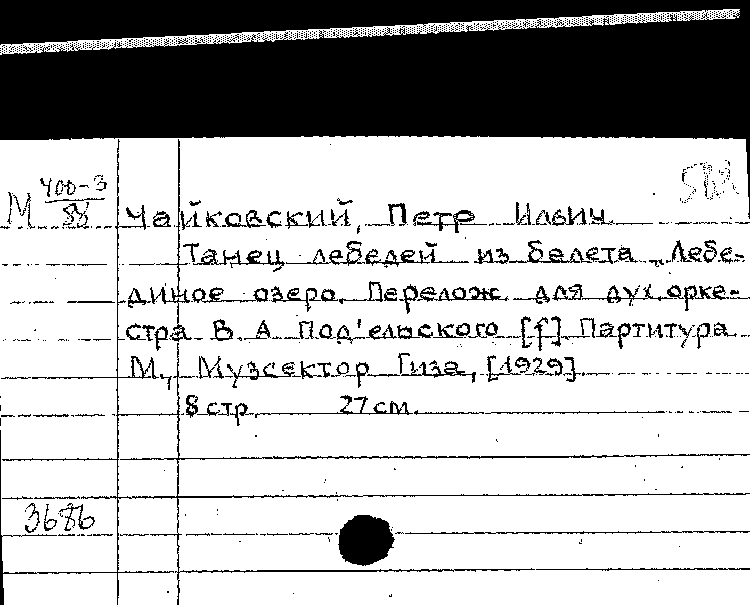 М 400-3
88
Чайковский, Петр Ильич.
Танец лебедей из балета „Лебе-
диное озеро. Перелож. для дух. орке-
стра В. А. Под'ельского [f]. Партитура
М., Музсектор Гиза, [1929].
8 стр. 27 см.
3686